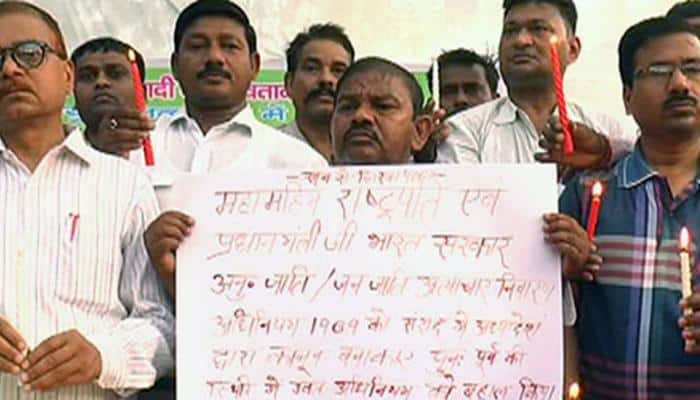 महामहिम राष्ट्रपति एवं
प्रधानमंत्री जी भारत सरकार
अनु० जाति / जन जाति अत्याचार निवारण
अधिनियम 1989 को संसद से अध्यादेश
द्वारा कानून बनाकर पुनः पूर्व की
स्थिती में उक्त अधिनियम को बहाल किया